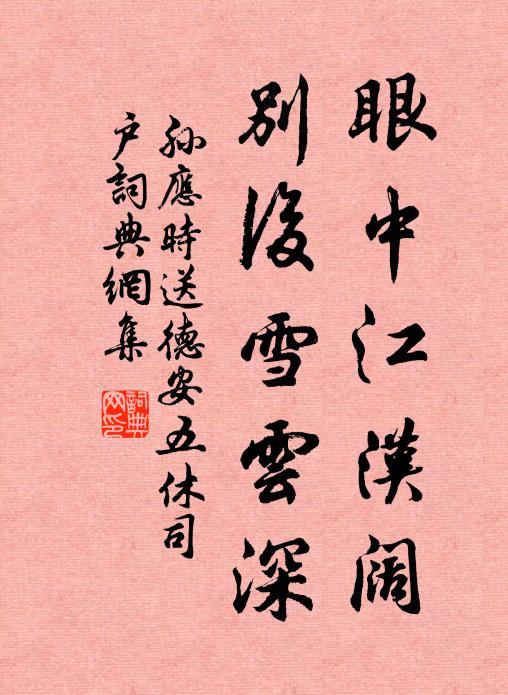 眼中江漢闊
別後雪雲深
孫應時送德安五休司
户詞典網集
詞典网印